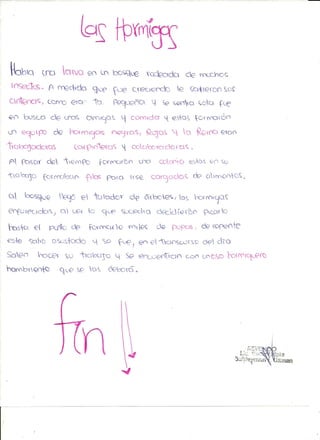 Las Hormigas
Habia una larva en un bosque rodeada de muchos
insectos. A medida que fue creciendo le salieron sus
antenas, como era la pequeña y se sentia sola fue
en busca de unas amigas y comida y ellas formaron
un equipo de hormigas negras, Rojas y la Reina eran
trabajadoras carpinteras y colaboradoras.
Al pasar del tiempo formaron una colonia ellas en su
trabajo formaban filas para irse cargadas de alimentos.
al bosque llego el talador de árboles, las hormigas
enfurecidas, al ver lo que sucedia decidierón picarlo
hasta el punto de formarle miles de pupas, de repente
este salio asustado y se fue, en el transcurso del dia
Salen hacer su trabajo y se encuentran con un oso hormiguero
hambriento que se las devoró.
fin!!